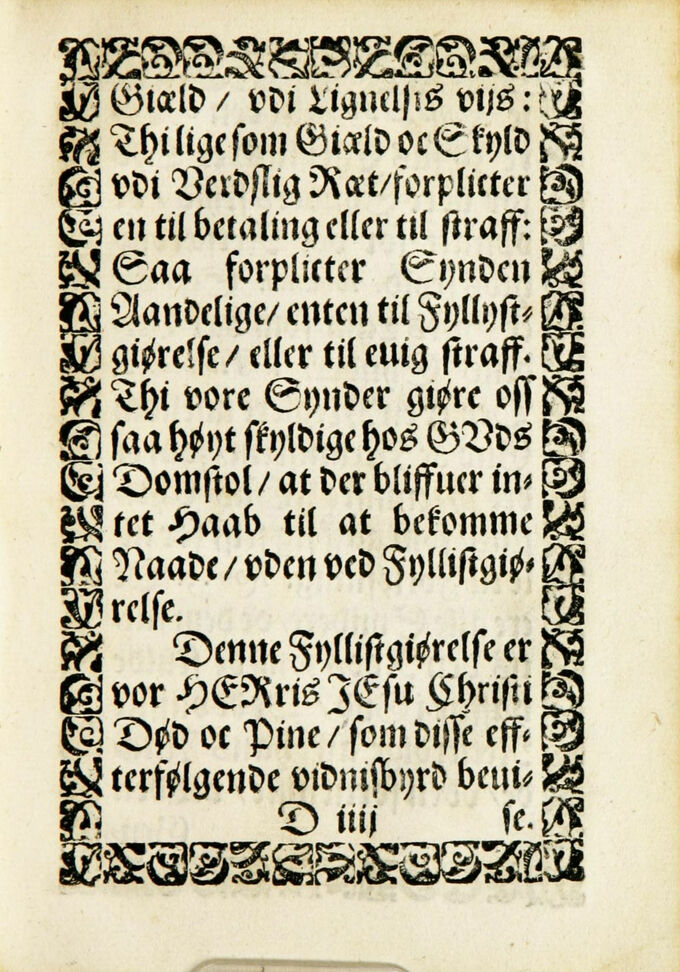 Giæld / vdi Lignelsis vijs:
Thi lige som Giæld oc Skyld
vdi Verdslig Ræt/forplicter
en til betaling eller til straff:
Saa forplicter Synden
Aandelige/ enten til Fyllyst-
giørelse/ eller til euig straff.
Thi vore Synder giøre oss
saa høyt skyldige hos GVds
Domstol/ at der bliffuer in-
tet Haab til at bekomme
Naade/ vden ved Fyllistgiø-
relse.
Denne Fyllistgiørelse er
vor HERris JEsu Christi
Død oc Pine/ som disse eff-
terfølgende vidnisbyrd beui-
D iiij se.